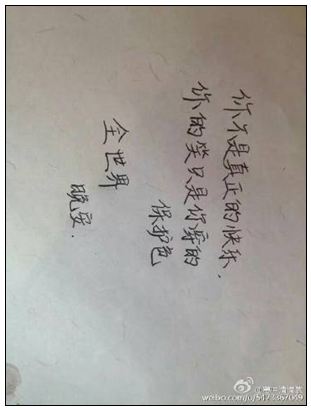 你不是真正的快乐.
你的笑只是你穿的
保护色
全世界
晚安.
weibo.com/u/5473367049